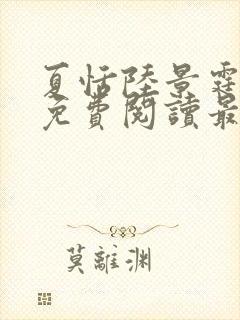 夏恬陸景霆
免費閱讀最
莫離渊